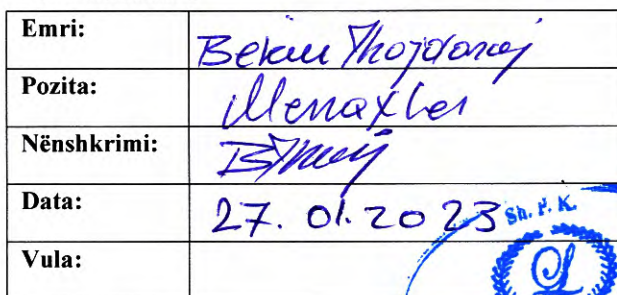 Emri: Bekim
Pozita: Menaxher
Nënshkrimi:
Data: 27. 01. 2023
Sh. P. K.
Vula: